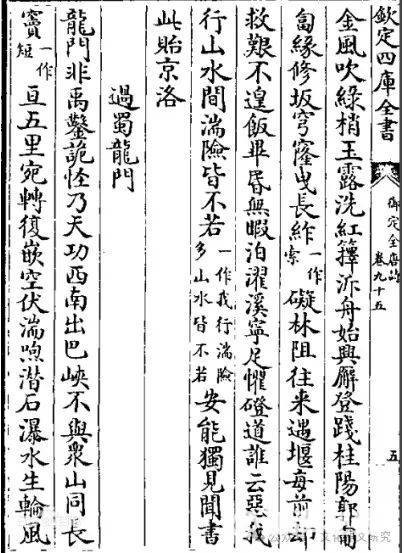 欽定四庫全書
御定全唐詩
卷九十五
五
金風吹綠梢玉露洗紅籜泝舟始興廨登踐桂陽郭匍
匐緣修坂穹窿曳長絙一作索礙林阻往来遇堰每前却
救艱不遑飯畢昏無暇泊濯溪寧足懼磴道誰云惡我
行山水間湍險皆不若一作我行湍險多山水皆不若安能獨見聞書
此貽京洛
過蜀龍門
龍門非禹鑿詭怪乃天功西南出巴峽不與衆山同長
竇一作短亘五里宛轉復嵌空伏湍喣潛石瀑水生輪風